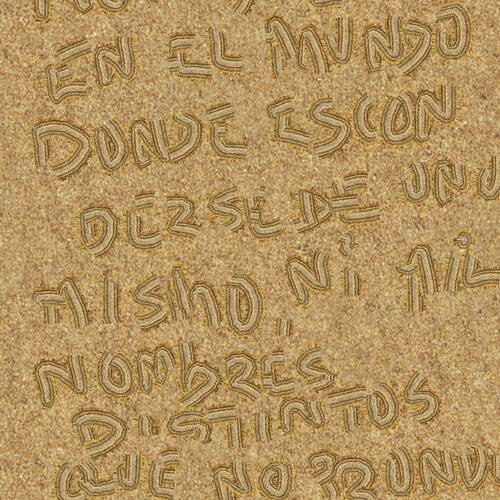 EN EL MUNDO
DONDE ESCON
DERSE DE UN
MISMO, NI MIL
NOMBRES
DISTINTOS
QUE NO PRONUN